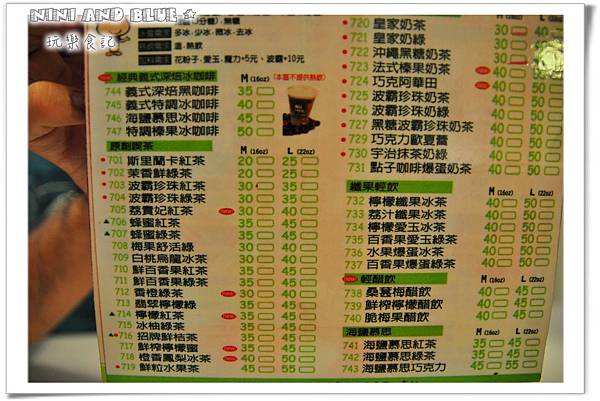 NINI AND BLUE ☆
玩樂食記
多冰.少冰.微冰.去冰
溫.熱飲
花粉子.愛玉.魔力+5元、波霸+10元
經典義式深焙冰咖啡 M(16oz) (本區不提供熱飲)
744 義式深焙黑咖啡 35
745 義式特調冰咖啡 40
746 海鹽慕思冰咖啡 45
747 特調榛果冰咖啡 50
原創喫茶 M(16oz) L(22oz)
701 斯里蘭卡紅茶 20 25
702 茉香鮮綠茶 20 25
703 波霸珍珠紅茶 30 35
704 波霸珍珠綠茶 30 35
705 荔貴妃紅茶 30 40
706 蜂蜜紅茶 35 45
707 蜂蜜綠茶 35 45
708 梅果舒活綠 30 40
709 白桃烏龍冰茶 30 40
710 鮮百香果紅茶 35 45
711 鮮百香果綠茶 35 45
712 香橙綠茶 30 40
713 翡翠檸檬綠 35 45
714 檸檬紅茶 35 45
715 冰柚綠茶 35 45
716 招牌鮮桔茶 35 45
717 鮮榨檸檬蜜 35 45
718 橙香鳳梨冰茶 40 50
719 鮮粒水果茶 45 55
720 皇家奶茶 30 40
721 皇家奶綠 30 40
722 沖繩黑糖奶茶
723 法式榛果奶茶 40
724 巧克阿華田 40 50
725 波霸珍珠奶茶 40 50
726 波霸珍珠奶綠 40 50
727 黑糖波霸珍珠奶茶 40 50
729 巧克力歐夏蕾 40 50
730 宇治抹茶奶綠 40 50
731 點子咖啡爆蛋奶茶 40 50
纖果輕飲 M(16oz) L(22oz)
732 檸檬纖果冰茶 40 50
733 荔汁纖果冰茶 40 50
734 檸檬愛玉冰茶 40 50
735 百香果愛玉綠茶 40 50
736 水果爆蛋綠茶 40 50
737 百果爆蛋綠茶 40 50
輕醋飲 M(16oz) L(22oz)
738 桑葚梅醋飲 40 50
739 鮮榨檸醋飲 40 50
740 脆梅果醋飲 40 50
海鹽慕思 M(16oz) L(22oz)
741 海鹽慕思紅茶 35 45
742 海鹽慕思綠茶 35 45
743 海鹽慕思巧克力 45 55